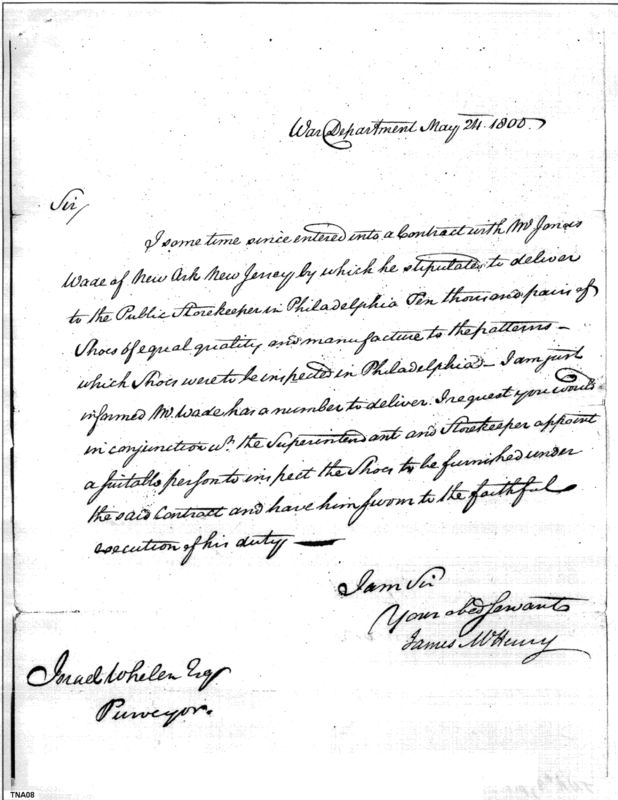 War Department May 24. 1800.
Sir,
I some time since entered into a Contract with Mr Jonas
Wade of New Ark New Jersey by which he stipulates to deliver
to the Public Storekeeper in Philadelphia Ten thousand pairs of
Shoes of equal quality and manufacture to the patterns –
which Shoes were to be inspected in Philadelphia – I am just
informed Mr. Wade has a number to deliver. I request you would
in conjunction wt. the Superintendant and Storekeeper appoint
a suitable person to inspect the Shoes to be furnished under
the said Contract and have him sworn to the faithful
execution of his duty —
I am Sir
Your obed Servant
James McHenry
Israel Whelen Esqr
Purveyor.
TNA08